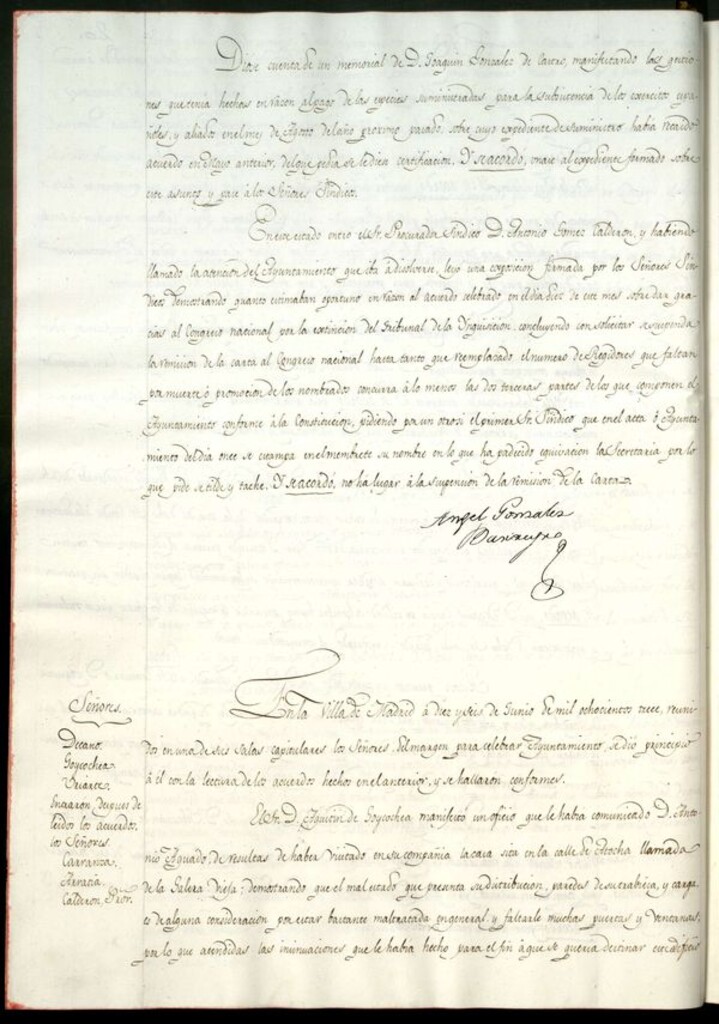 Diose cuenta de un memorial de D. Joaquin Gonzalez de Castro, manifestando las gestio-
nes que tenia hechas en razon al pago de las especies suministradas para la subsistencia de los exercitos espa-
ñoles, y aliados en el mes de Agosto del año proximo pasado, sobre cuyo expediente de suministro habia recaido
acuerdo en Mayo anterior, del que pedia se le diera certificacion. Y se acordó, únase al expediente formado sobre
este asunto, y pase á los Señores Síndicos.
En este estado entró el Sr. Procurador Síndico D. Antonio Gomez Calderon, y habiendo
llamado la atencion del Ayuntamiento que iba á disolverse, leyó una exposicion firmada por los Señores Sín-
dicos demostrando quanto estimaban oportuno en razon al acuerdo celebrado en el dia diez de este mes sobre dar gra-
cias al Congreso nacional por la extincion del Tribunal de la Ynquisicion, concluyendo con solicitar se suspenda
la remision de la carta al Congreso nacional hasta tanto que reemplazado el numero de Regidores que faltan
por muerte ó promocion de los nombrados concurra á lo menos las dos terceras partes de los que componen el
Ayuntamiento conforme á la Constitucion, pidiendo por un otrosi el primer Sr. Síndico que en el acta ó Ayunta-
miento del dia once se estampa en el membrete su nombre en lo que ha padecido equivocacion la Secretaria por lo
que pide se tilde y tache. Y se acordó, no há lugar á la suspension de la remision de la Carta.
Angel Gonzalez
Barreyro
Señores.
Decano.
Goycochea.
Uriarte.
Entraron despues de
leidos los acuerdos,
los Señores
Carranza.
Arratia.
Calderon, Pror.
En la Villa de Madrid á diez y seis de Junio de mil ochocientos trece, reuni-
dos en una de sus salas capitulares los Señores del margen para celebrar Ayuntamiento, se dió principio
á él con la lectura de los acuerdos hechos en el anterior, y se hallaron conformes.
El Sr. D. Agustin de Goycochea manifestó un oficio que le habia comunicado D. Anto-
nio Aguado, de resultas de haber visitado en su compañia la casa sita en la calle de Atocha llamada
de la Galera Vieja; demostrando que el mal estado que presenta su distribucion, paredes de su trabieza, y carga
es de alguna consideracion por estar bastante maltratada en general, y faltarle muchas puertas y ventanas,
por lo que atendidas las insinuaciones que le habia hecho para el fin á que se queria destinar este edificio